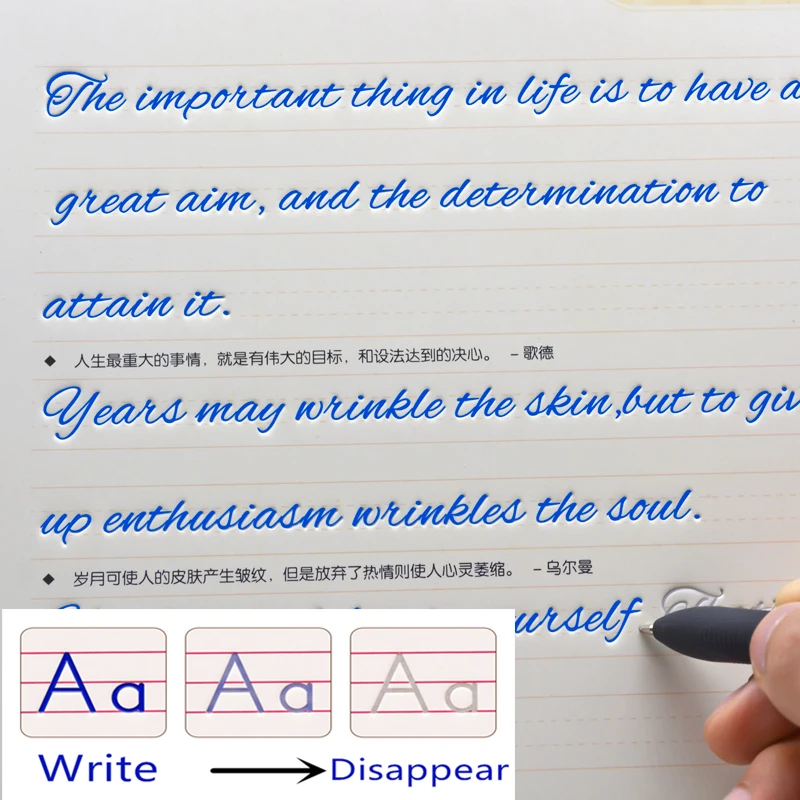 The important thing in life is to have a
great aim, and the determination to
attain it.
◆ 人生最重大的事情，就是有伟大的目标，和设法达到的决心。 – 歌德
Years may wrinkle the skin,but to giv
up enthusiasm wrinkles the soul.
◆ 岁月可使人的皮肤产生皱纹，但是放弃了热情则使人心灵萎缩。 – 乌尔曼
urself
Aa Aa Aa
Write Disappear